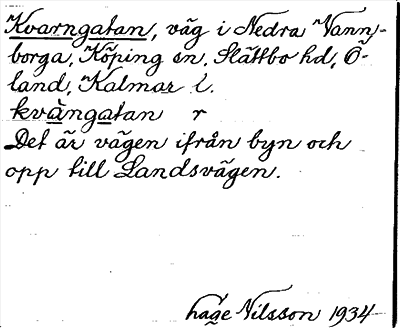 Kvarngatan, väg i Nedra Vann-
borga, Köping sn, Slättbo hd, Ö-
land, Kalmar l.
kvàngatan r
Det är vägen ifrån byn och
opp till Landsvägen.
hage Nilsson 1934